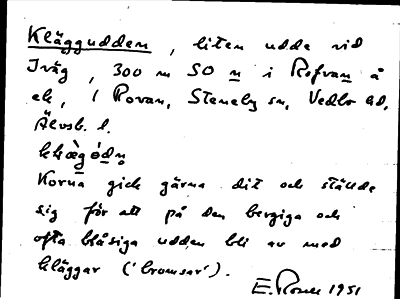 Kläggudden, liten udde vid
Iväg, 300 m SO n i Rofvan å
ek, i Rovan, Steneby sn, Vedbo hd,
Älvsb. l.
klæ̀gódn
Korna gick gärna dit och ställde
sig för att på den bergiga och
ofta blåsiga udden bli av med
kläggar ('bromsar').
E. 1951